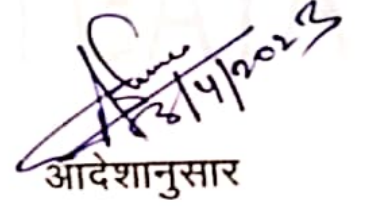 3/4/2023
आदेशानुसार